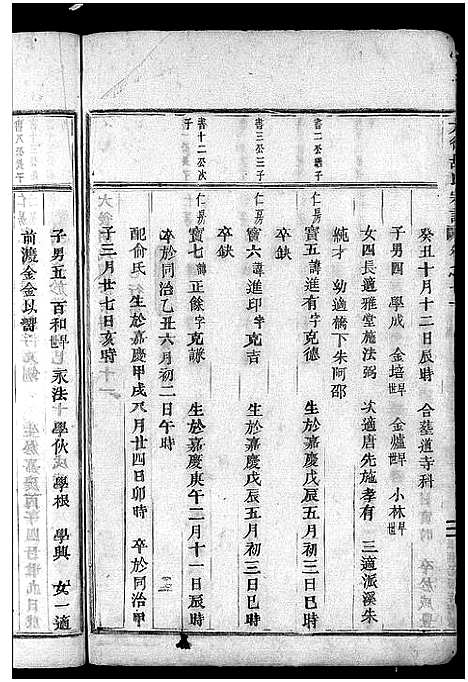 癸丑十月十二日辰時 合墓道寺科
子男四 學成 金培早世 金爐早世 小林早世
女四長適雅堂施法弼 次適唐先施孝有 三適派溪朱
純才 幼適橋下朱阿邵
書二公繼子 仁房 寶五諱進有字克德 生於嘉慶戊辰五月初三日巳時
卒缺
書三公三子 仁房 寶六諱進印字克吉 生於嘉慶戊辰五月初三日巳時
卒缺
書十二公次子 仁房 寶七諱正餘字克謙 生於嘉慶庚午二月十一日辰時
卒於同治乙丑六月初二日午時
配俞氏 生於嘉慶甲戌八月廿四日卯時 卒於同治甲
子三月廿七日亥時
子男五 百和早世 永法 學伙 學根 學興 女一適
前渡金金以